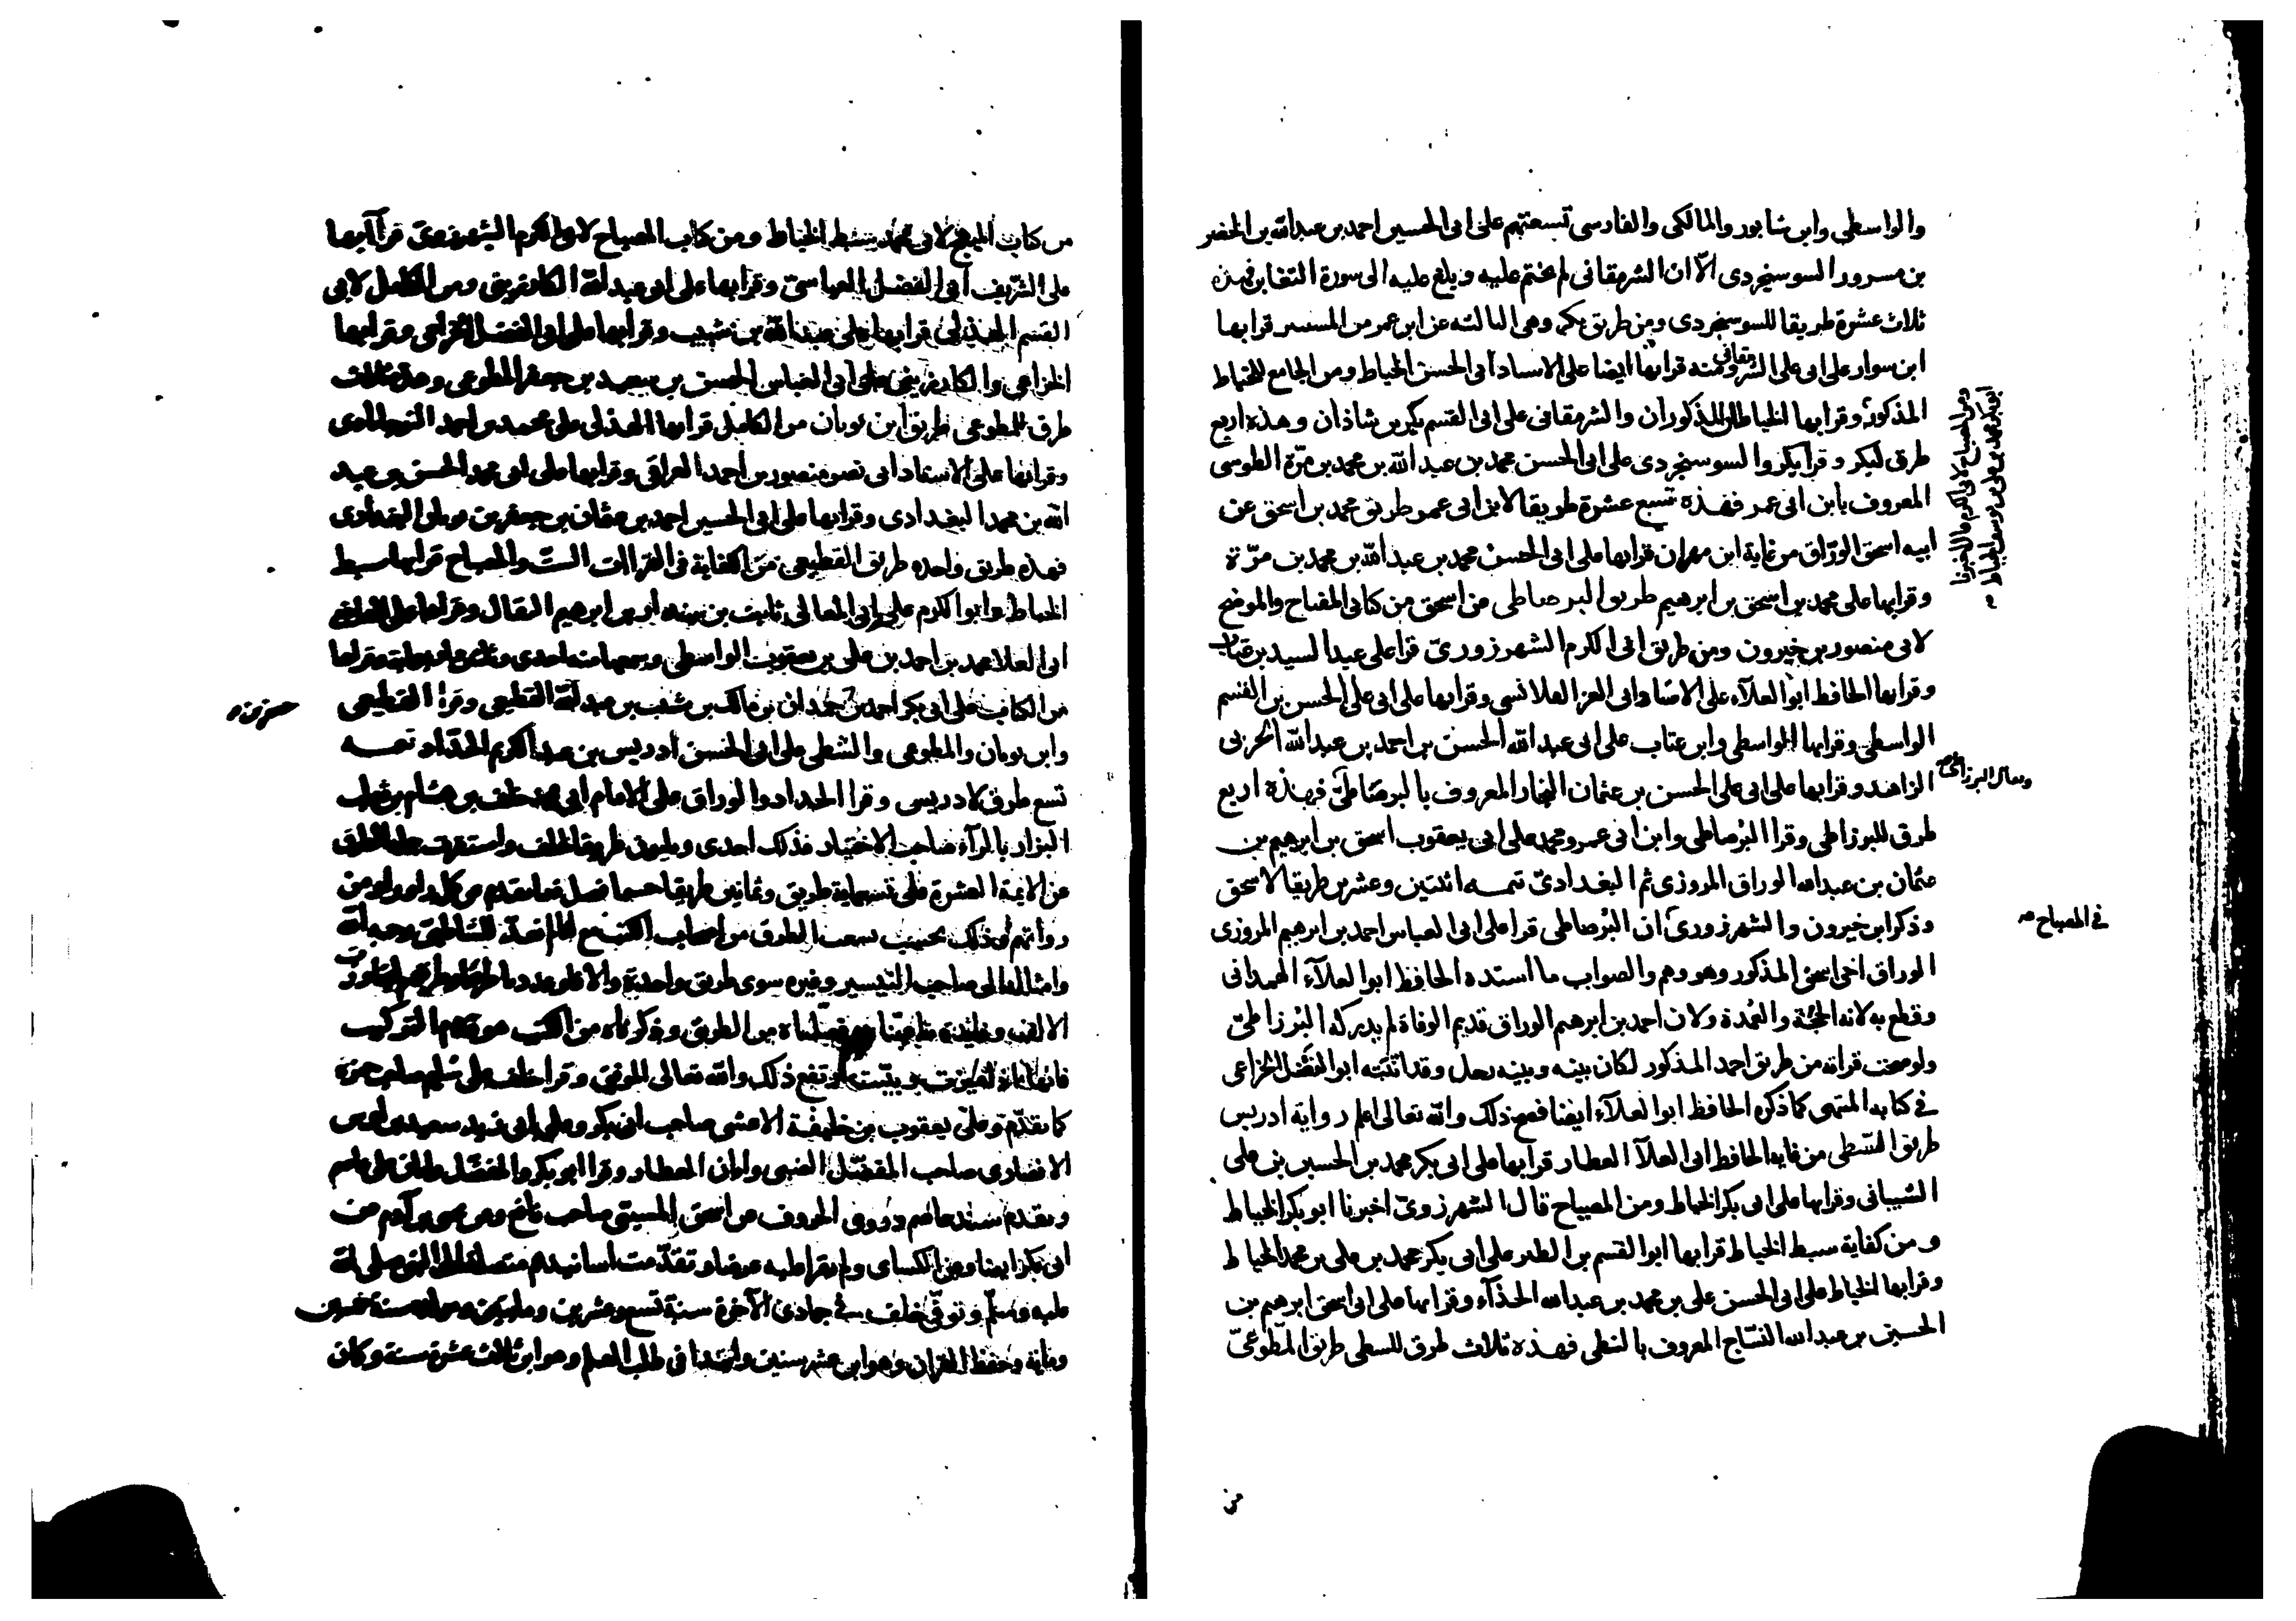 والواسطى وابن شابور والمالكى والفارسى تسعتهم على ابى الحسين احمد بن عبد الله بن الخضر
بن مسرور السوسنجردى الا ان الشرمقانى لم يختم عليه وبلغ عليه الى سورة التغابن فهذه
ثلاث عشرة طريقا للسوسنجردى ومن طريق بكر وهى الثالثة عن ابن عمر من المستنير قرا بها
ابن سوار على ابى على الشرمقانى ومنه قرا بها ايضا على الاستاد ابى الحسن الخياط ومن الجامع للخياط
المذكور وقرا بها الخياطان المذكوران والشرمقانى على ابى القسم بكر بن شاذان وهذه اربع
طرق لبكر وقرا بكر والسوسنجردى على ابى الحسن محمد بن عبد الله بن محمد بن مرّة الطوسى
المعروف بابن ابى عمر فهذه تسع عشرة طريقا لابن ابى عمر طريق محمد بن اسحق عن
ابيه اسحق الورّاق من غاية ابن مهران قرا بها على ابى الحسن محمد بن عبد الله بن محمد بن مرّة
وقرا بها على محمد بن اسحق بن ابرهيم طريق البرصاطى من اسحق من كتابى المفتاح والموضح
لابى منصور بن خيرون ومن طريق ابى الكرم الشهرزورىّ قرا على عبد السيد بن عتاب
وقرا بها الحافظ ابو العلآء على الاستاد ابى العز القلانسى وقرا بها على ابى على الحسن بن القسم
الواسطى وقرا بها الواسطى وابن عتاب على ابى عبد الله الحسن بن احمد بن عبد الله الحربى
الزاهد وقرا بها على ابى على الحسن بن عثمان النجار المعروف بالبرصاطىّ فهذه اربع
ويقال البرزاطى
طرق للبرزاطى وقرا البرصاطى وابن ابى عمر ومحمد على ابى يعقوب اسحق بن ابرهيم بن
عثمان بن عبد الله الوراق المروزى ثم البغدادىّ تتمه اثنتين وعشرين طريقا لاسحق
وذكر ابن خيرون والشهرزورىّ ان البرصاطى قرا على ابى العباس احمد بن ابرهيم المروزى
في المصباح
الوراق اخى اسحق المذكور وهو وهم والصواب ما اسنده الحافظ ابو العلآء الهمدانى
وقطع به لانه الحجّة والعُمدة ولان احمد بن ابرهيم الوراق قديم الوفاة لم يدركه البرزاطىّ
ولو صحت قراته من طريق احمد المذكور لكان بينه وبينه رجل وقد اثبته ابو الفضل الخزاعى
في كتابه المنتهى كما ذكره الحافظ ابو العلآء ايضا فصح ذلك والله تعالى اعلم رواية ادريس
طريق الشطى من غاية الحافظ ابى العلآ العطار قرا بها على ابى بكر محمد بن الحسين بن على
الشيبانى وقرا بها على ابى بكر الخياط ومن المصباح قال الشهرزورىّ اخبرنا ابو بكر الخياط
ومن كفاية سبط الخياط قرا بها ابو القسم بن الطبر على ابى بكر محمد بن على بن محمد الخياط
وقرا بها الخياط على ابى الحسن على بن محمد بن عبد الله الحذآء وقرا بها على ابى اسحق ابرهيم بن
الحسين بن عبد الله النسّاج المعروف بالشطى فهذه ثلاث طرق للشطى طريق المطّوعىّ
ومن المصباح لابى الكرم قال اخبرنا
ابو بكر محمد بن على بن يوسف الخياط
من
من كتاب المبهج لابى محمد سبط الخياط ومن كتاب المصباح لابى الكرم الشهرزورىّ قرآ بها
على الشريف ابى الفضل العباسىّ وقرا بها على ابى عبد الله الكارزينى ومن الكامل لابى
القسم الهذلى قرا بها على عبد الله بن شبيب وقرا بها على ابى الفضل الخزاعى وقرا بها
الخزاعى والكارزينى على ابى العباس الحسن بن سعيد بن جعفر المطوعى وهذه ثلاث
طرق للمطوعى طريق ابن بويان من الكامل قرا بها الهذلى على محمد بن احمد النوجاباذى
وقرا بها على الاستاد ابى نصر منصور بن احمد العراقى وقرا بها على ابى محمد الحسن بن عبد
الله بن محمد البغدادى وقرا بها على ابى الحسين احمد بن عثمان بن جعفر بن بويان البغدادى
فهذه طريق واحده طريق القطيعى من الكفاية فى القراات الست والمصباح قرا بها سبط
الخياط وابو الكرم على ابى المعالى ثابت بن بندار بن ابرهيم البقال وقرا بها على القاضى
ابى العلا محمد بن احمد بن على بن يعقوب الواسطى وسمعها منه احدى وثلثين واربعماية وقراها
من الكتاب على ابى بكر احمد بن جعفر بن حمدان بن مالك بن شبيب بن عبد الله القطيعى وقرا القطيعى
وابن بويان والمطوعى والشطى على ابى الحسن ادريس بن عبد الكريم الحدّاد تتمه
تسع طرق لادريس وقرا الحداد والوراق على الامام ابى محمد خلف بن هشام بن ثعلب
البزار بالرآء صاحب الاختيار فذلك احدى وثلثون طريقا لخلف واستقرت جملة الطرق
عن الايمة العشرة على تسعماية طريق وثمانين طريقا حسبما فصل فيما تقدم عن كل راو راو من
رواتهم وذلك بحسب تشعب الطرق من اصحاب الكتب مع انا لم نعدّ للشاطبىّ رحمه الله
وامثاله الى صاحب التيسير وغيره سوى طريق واحدة والا فلو عددنا طرقنا وطرقهم لتجاوزت
الالف وفايدة ما عيّناه وفصّلناه من الطرق وذكرناه من الكتب هو عدم التركيب
فانها اذا ميّزت وبيّنت ارتفع ذلك والله تعالى الموفق وقرا خلف على سليم صاحب حمزة
كما تقدّم وعلى يعقوب بن خليفة الاعشى صاحب ابى بكر وعلى ابى زيد سعيد بن اوس
الانصارى صاحب المفضّل الضبى وابان العطار وقرا ابو بكر والمفضل وابان على عاصم
وتقدم سند عاصم وروى الحروف عن اسحق المسيبى صاحب نافع وعن يحيى بن آدم عن
ابى بكر ايضا وعن الكساى ولم يقرا عليه عرضا وتقدّمت اسانيدهم متصلة الى النبى صلى الله
عليه وسلّم وتوفّى خلف في جمادى الآخرة سنة تسع وعشرين وماتين ومولده سنة خمسين
وماية وحفظ القران وهو ابن عشر سنين وابتدا فى طلب العلم وهو ابن ثلاث عشرة سنة وكان